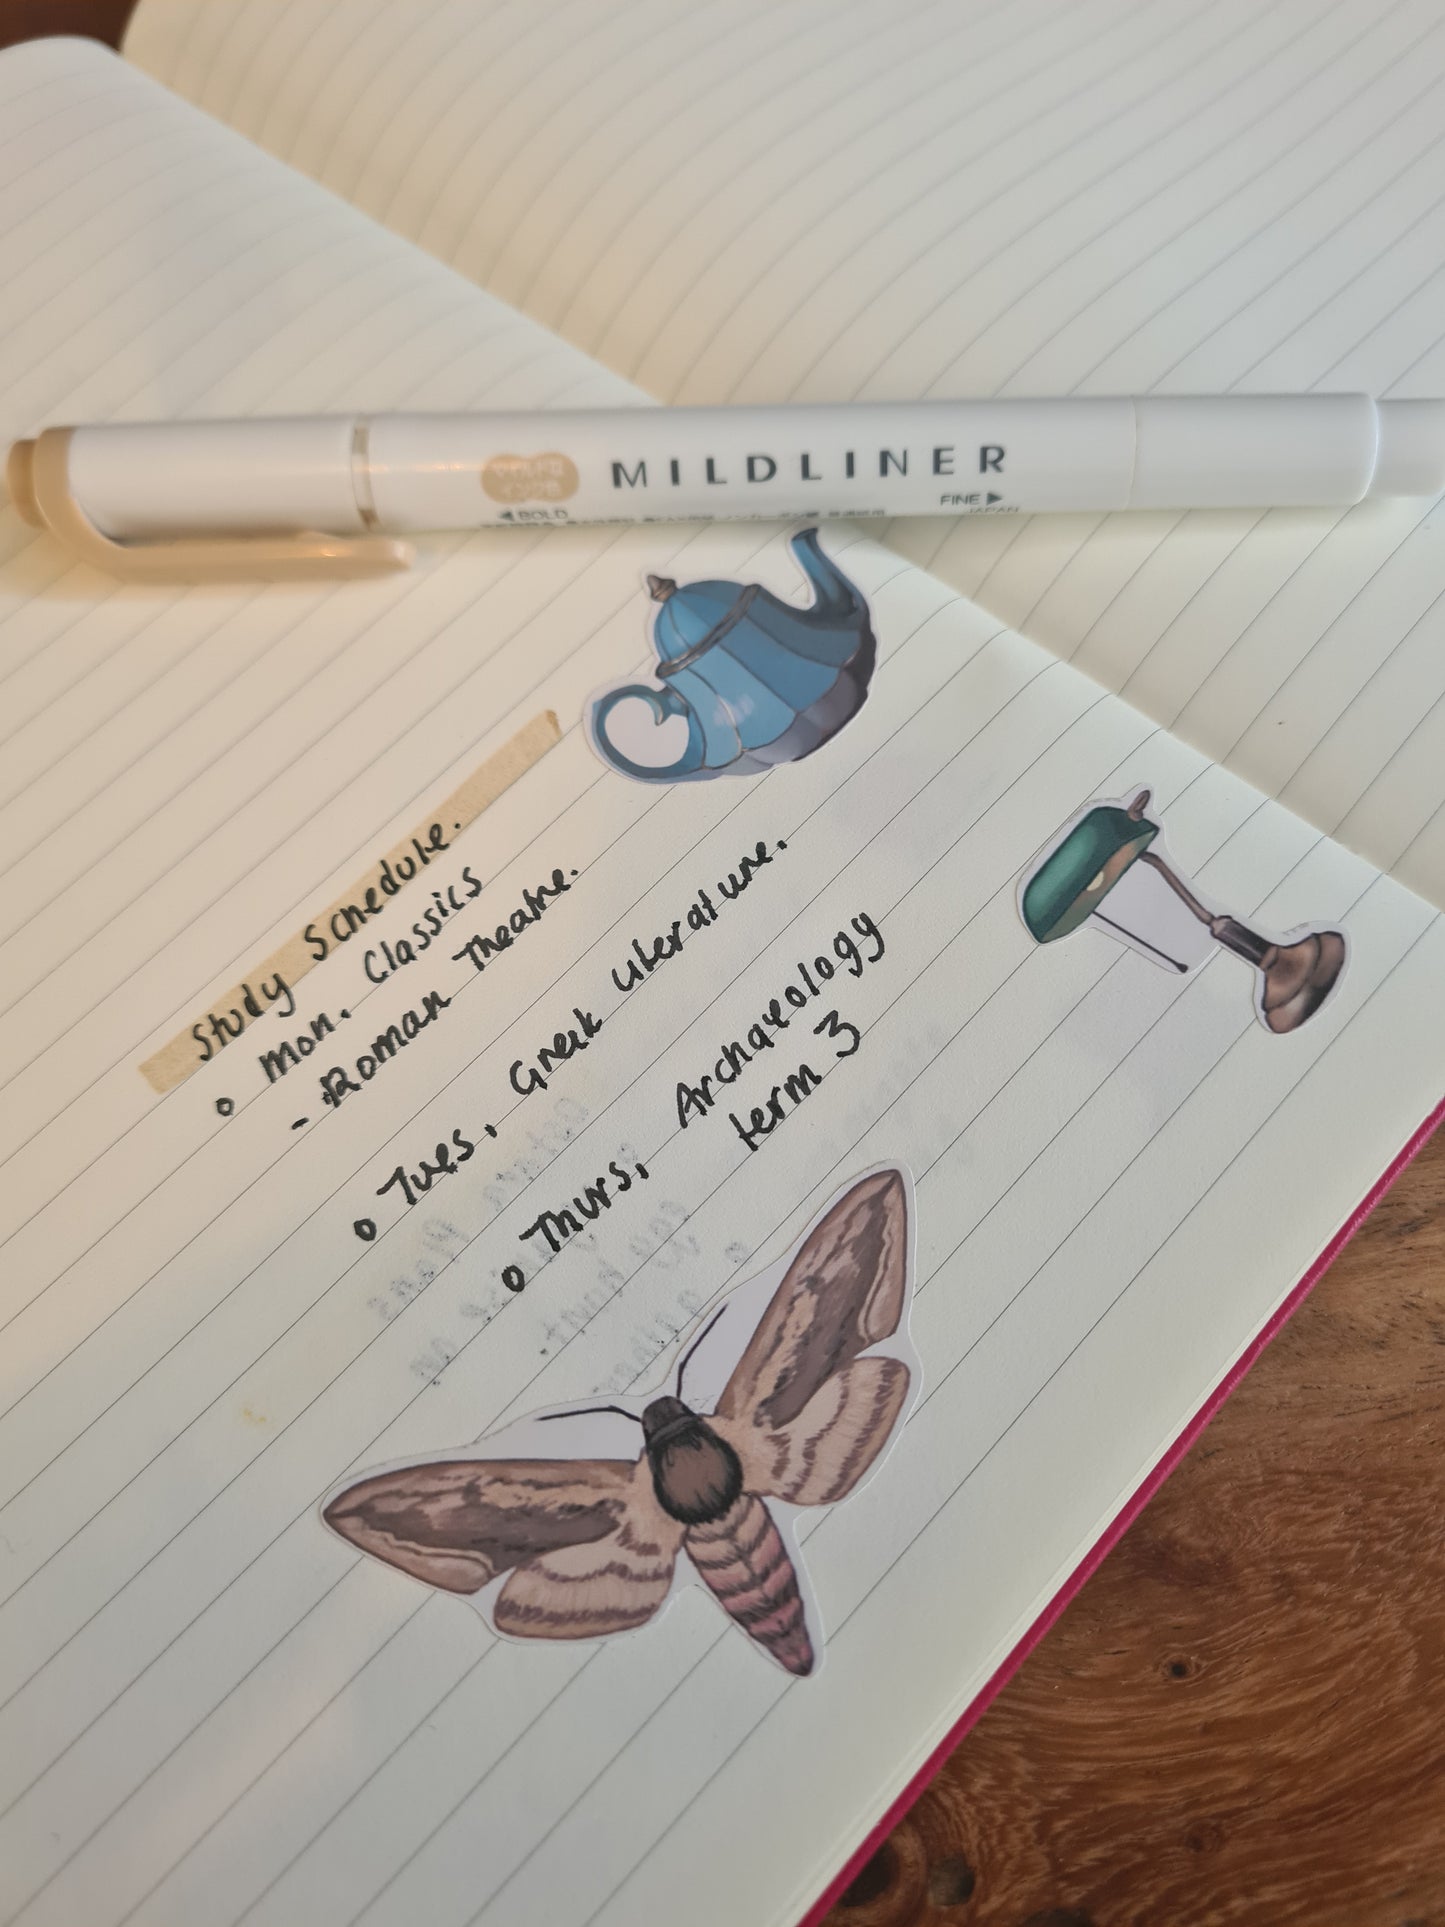 マイルド
インク色
MILDLINER
◀BOLD
FINE▶
JAPAN
Study Schedule.
• Mon, Classics
- Roman Theatre.
• Tues, Greek Literature.
• Thurs, Archaeology
term 3